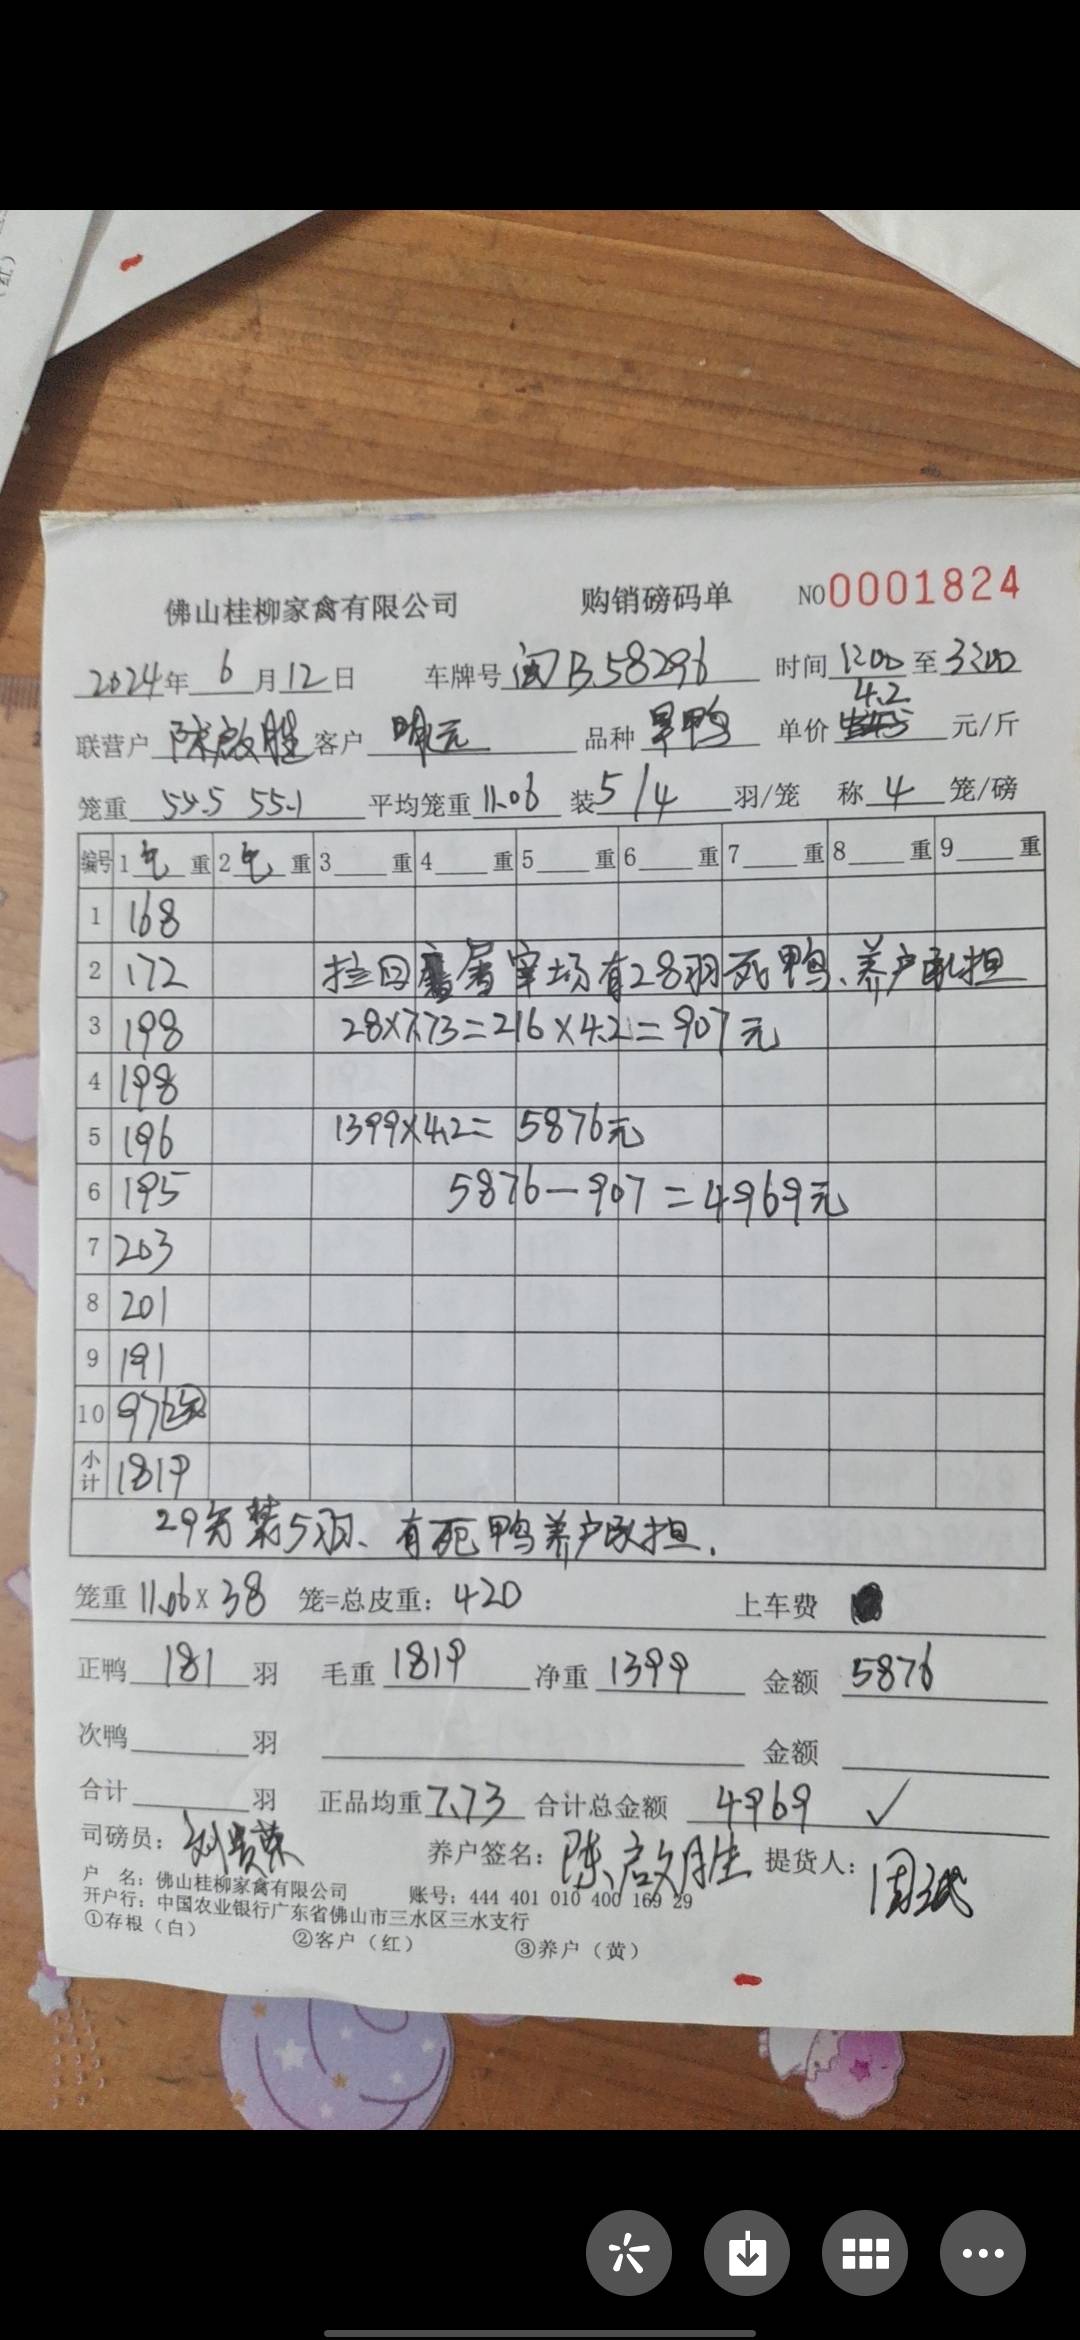 佛山桂柳家禽有限公司 购销磅码单 NO0001824
2024年 6月12日 车牌号 闽B.58296 时间 12:00 至 3:00
4.2
联营户 陈啟胜 客户 坤元 品种 旱鸭 单价 元/斤
笼重 55.5 55.1 平均笼重 11.06 装 5/4 羽/笼 称 4 笼/磅
编号 1 毛 重 2 毛 重 3 重 4 重 5 重 6 重 7 重 8 重 9 重
1 168
2 172 拉回 屠宰场有28羽死鸭、养户承担
3 198 28×7.73=216×4.2=907元
4 198
5 196 1399×4.2=5876元
6 195 5876-907=4969元
7 203
8 201
9 191
10 97
小计 1819
29 装5羽、有死鸭养户承担.
笼重 11.06×38 笼=总皮重: 420 上车费
正鸭 181 羽 毛重 1819 净重 1399 金额 5876
次鸭 羽 金额
合计 羽 正品均重 7.73 合计总金额 4969 ✓
司磅员: 刘贵荣 养户签名: 陈啟胜 提货人:
户 名: 佛山桂柳家禽有限公司 账号: 444 401 010 400 169 29
开户行: 中国农业银行广东省佛山市三水区三水支行
①存根(白) ②客户(红) ③养户(黄)